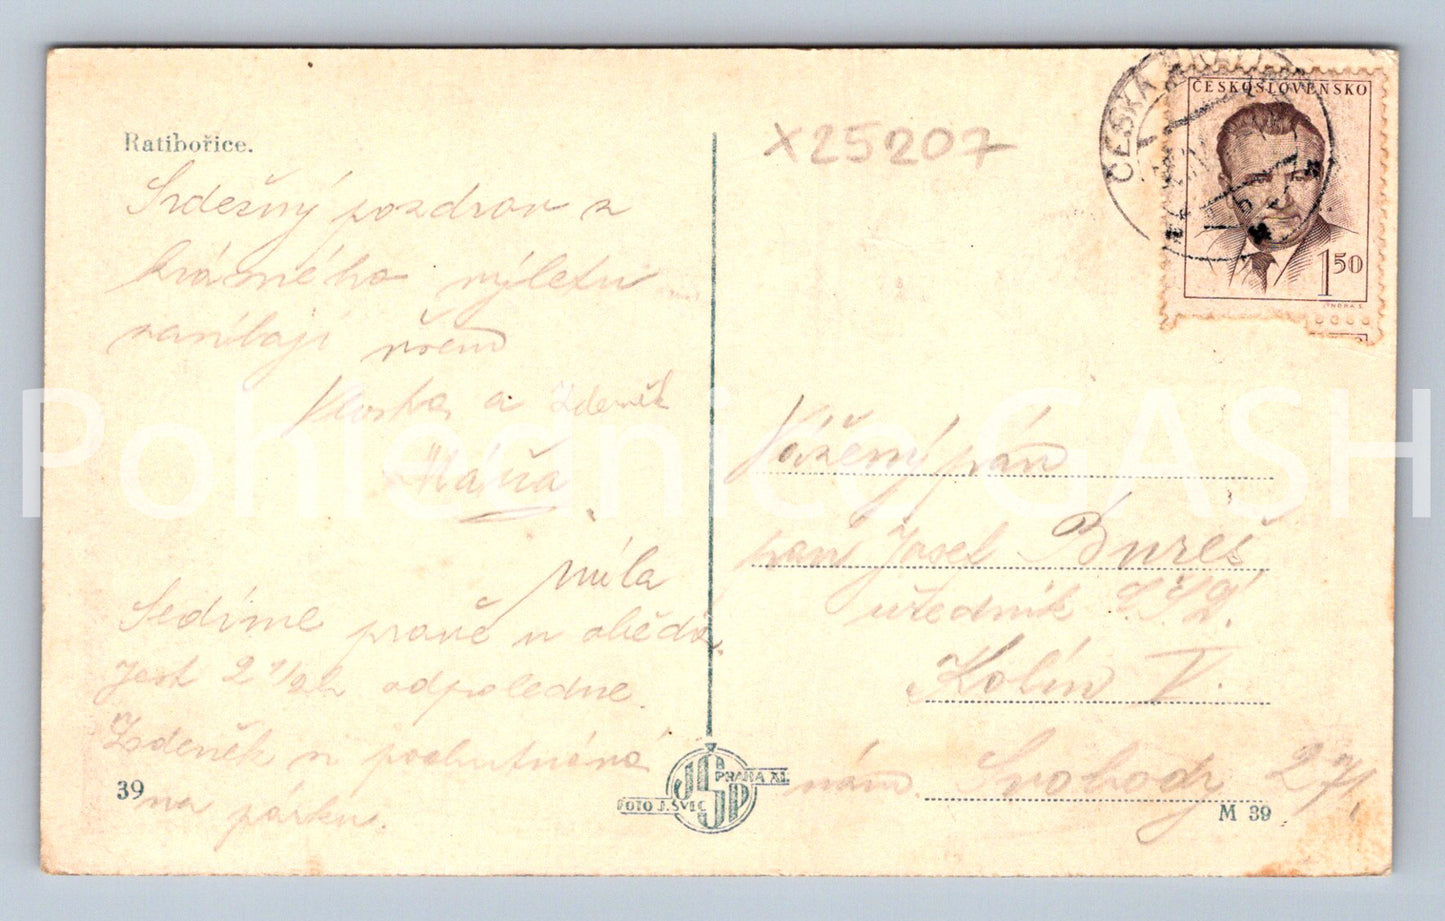 Ratibořice.
Srdečný pozdrav z
krásného výletu
zasílají všem
Vlasta a Zdeněk
Máňa
Míla
Sedíme pravě u oběda.
Jest 2 1/2 h odpoledne.
Zdeněk si pochutnává
na párku.
39
X25207
ČESKÁ
ČESKOSLOVENSKO
1.50
Vážený pán
pan Josef Bureš
úředník Č.S.D.
Kolín V.
nám. Svobody 271.
M 39
PRAHA XI.
JŠP
FOTO J. ŠVEC
Pohlednice GASH